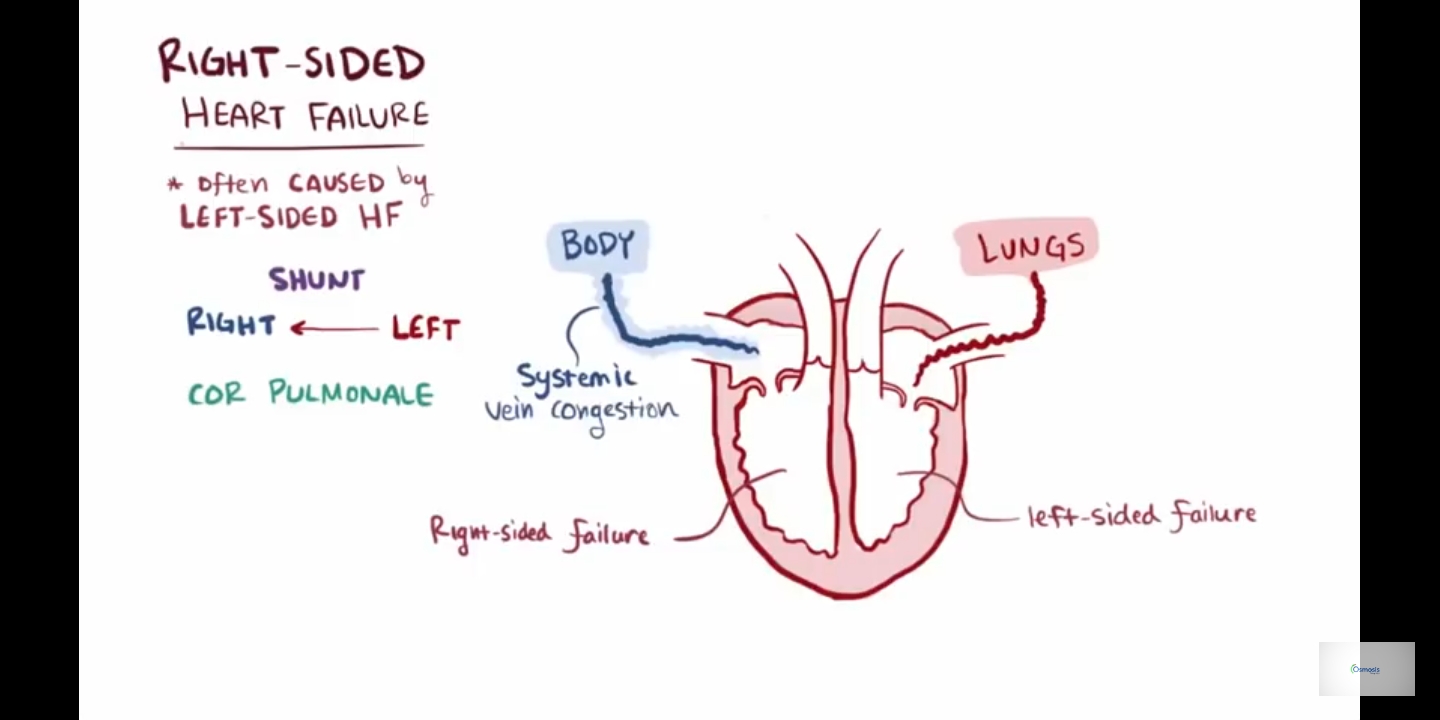 RIGHT-SIDED
HEART FAILURE
* often CAUSED by
LEFT-SIDED HF
SHUNT
RIGHT ← LEFT
COR PULMONALE
BODY
LUNGS
Systemic
vein congestion
Right-sided failure
left-sided failure
Osmosis